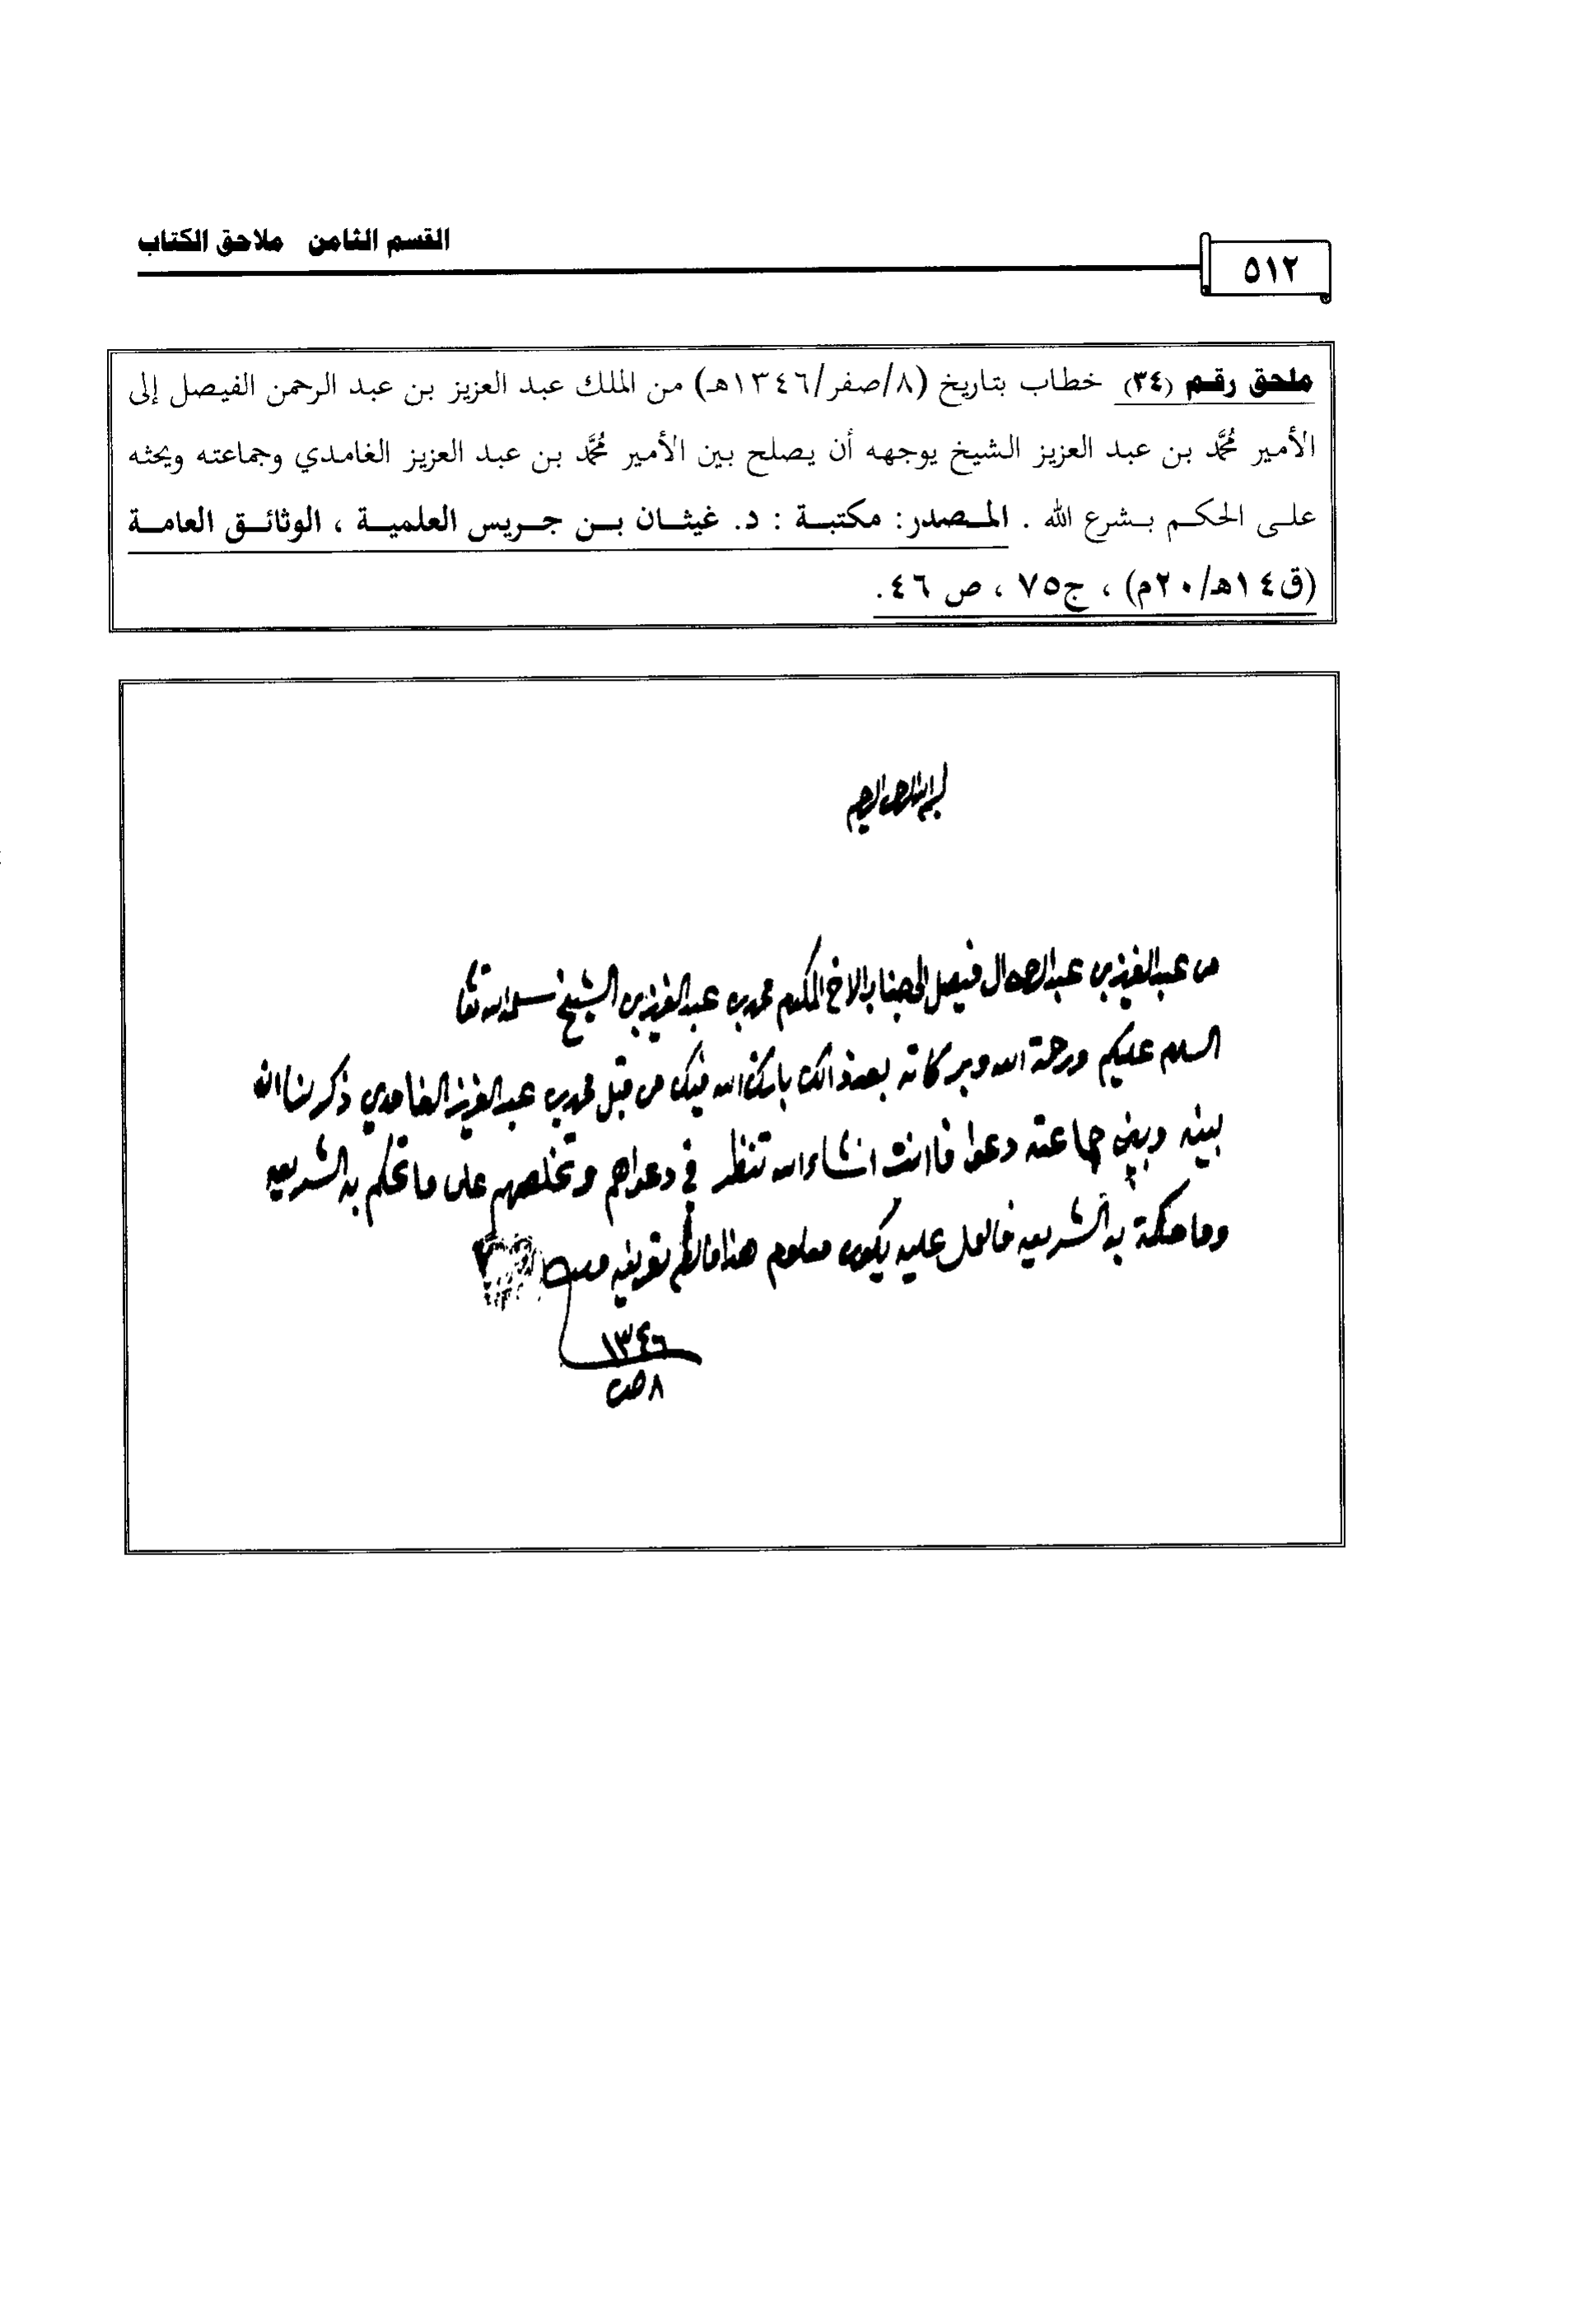 القسم الثامن ملاحق الكتاب
٥١٢
ملحق رقم (٣٤) خطاب بتاريخ (٨/صفر/١٣٤٦هـ) من الملك عبد العزيز بن عبد الرحمن الفيصل إلى
الأمير مُحمَّد بن عبد العزيز الشيخ يوجهه أن يصلح بين الأمير مُحمَّد بن عبد العزيز الغامدي وجماعته ويحثه
على الحكم بشرع الله . المصدر: مكتبة : د. غيثان بن جريس العلمية ، الوثائق العامة
(ق١٤هـ/٢٠م) ، ج٧٥ ، ص ٤٦.
بسم الله الرحمن الرحيم
من عبدالعزيز بن عبدالرحمن ال فيصل الى جناب الاخ المكرم محمد بن عبدالعزيز بن الشيخ سلمه الله تعا
السلام عليكم ورحمة الله وبركاته بعد ذالك بارك الله فيك من قبل محمد بن عبدالعزيز الغامدي ذكر لنا انه
بينه وبين جماعته دعوا فاانت انشاء الله تنظر في دعواهم وتخلصهم على ما تحكم به الشريعه
وما حكمة به الشريعه فالعمل عليه يكون معلوم هذا مالزم تعريفه
١٣٤٦
٨ ص